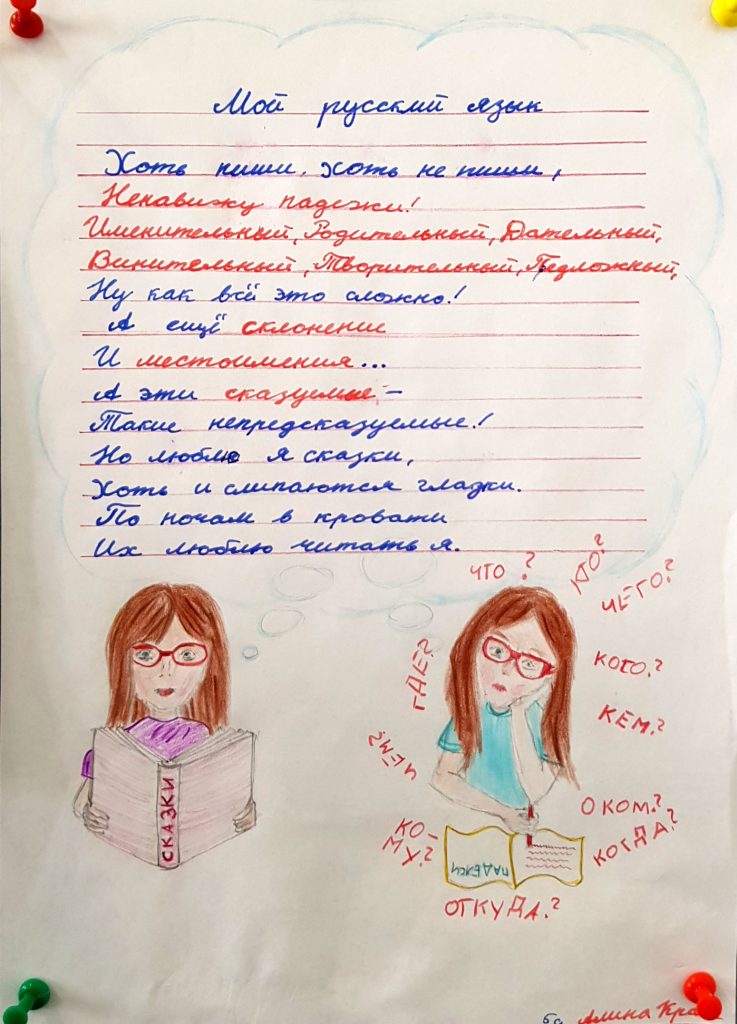 Мой русский язык
Хоть пиши, хоть не пиши,
Ненавижу падежи!
Именительный, Родительный, Дательный,
Винительный, Творительный, Предложный,
Ну как всё это сложно!
А ещё склонение
И местоимения...
А эти сказуемые –
Такие непредсказуемые!
Но люблю я сказки,
Хоть и слипаются глазки.
По ночам в кровати
Их люблю читать я.
ЧТО?
КТО?
ЧЕГО?
ГДЕ?
КОГО?
КЕМ?
ЧЕМ?
О КОМ?
КО-
МУ?
КОГДА?
ОТКУДА?
СКАЗКИ
ПАДЕЖИ
Алина